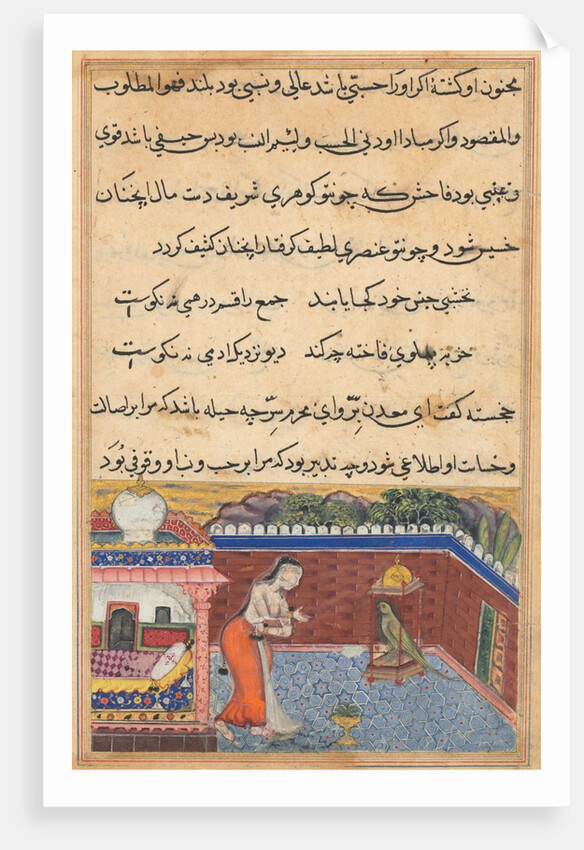 مجنون او کشته اکر اورا حسبی باشد عالی و نسبی بود بلند فهوا لمطلوب
والمقصود واکر مبادا اودنی الحسب ولئیم النسب بود بس حیفی باشد قوی
و بود فاحش که چونتو کوهری شریف دست مال اینچنان
خسیس شود و چونتو عنصری لطیف کرفتار اینچنان کثیف کردد
نخشبی جنس خود کجا یابند جمع راقم درهمی نه نکوست
خر به پهلوی فاخته چرکند دیو نزدیک ادمی نه نکوست
خجسته کفت ای معدن بِرّ وای محرم سِرّ چه حیله باشد که مرا بر اصالت
وخساست او اطلاعی شود و چه تدبیر بود که مرا بر حسب ونسب او وقوفی بُوَد